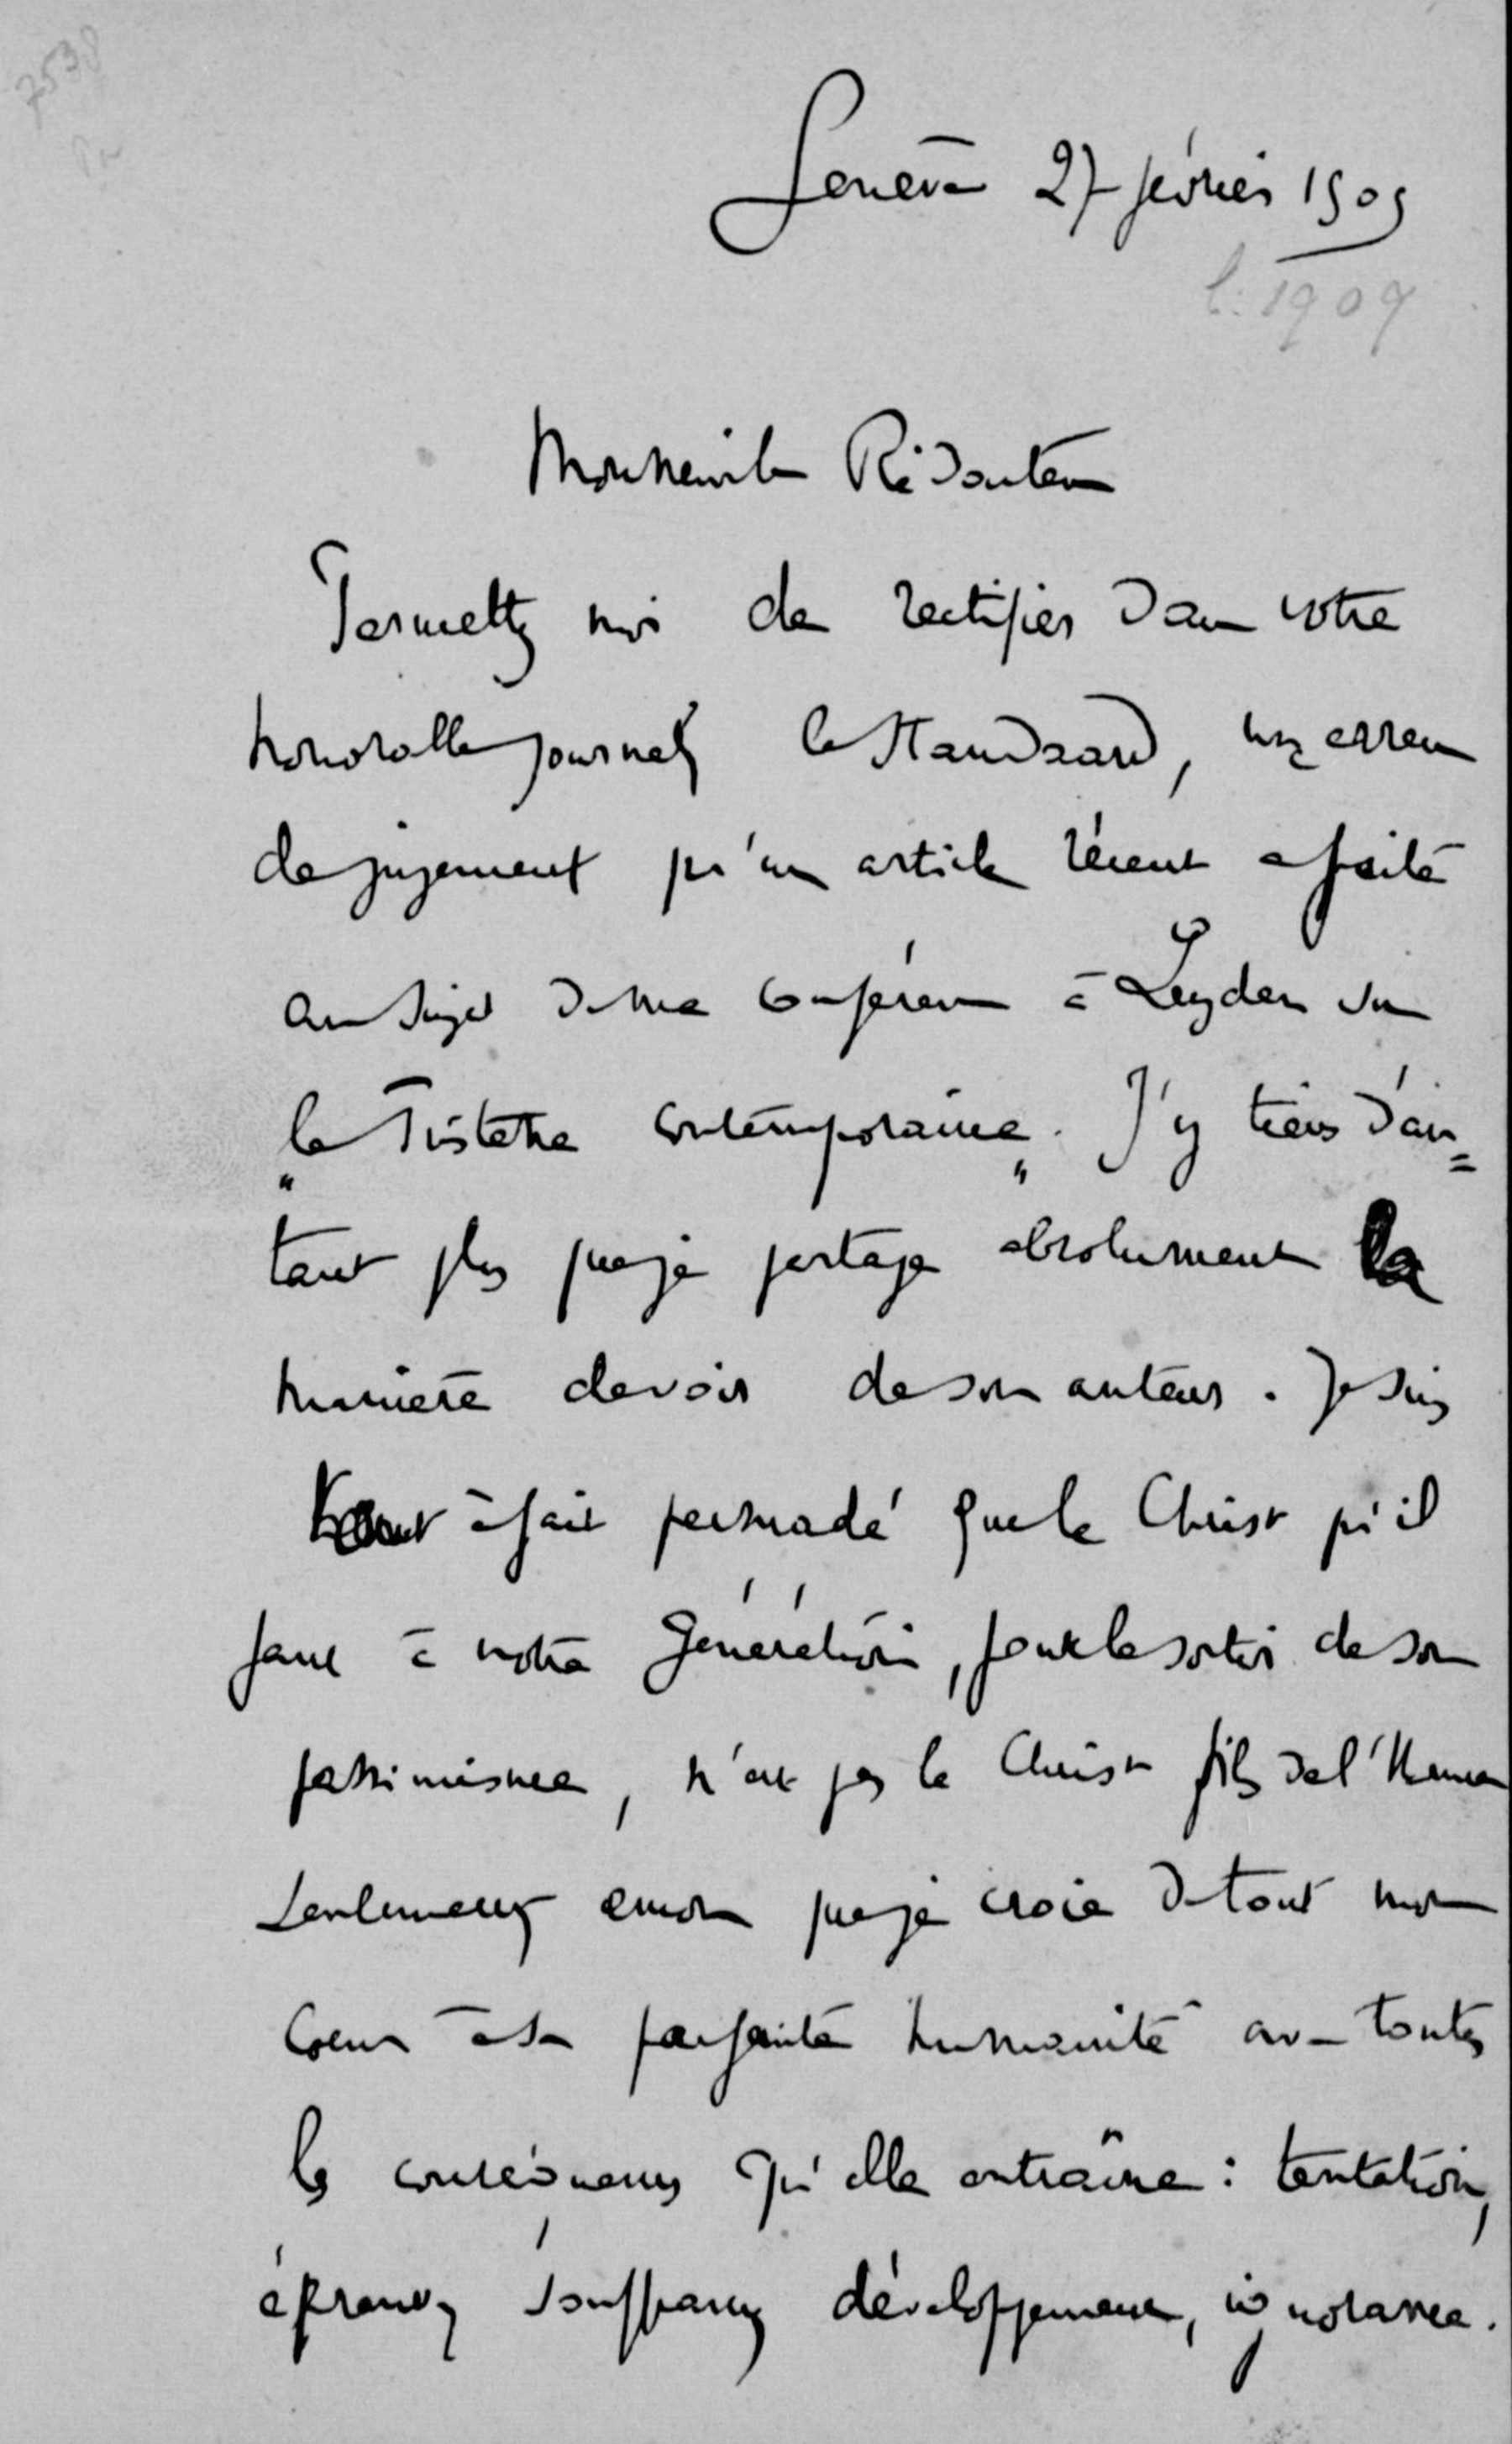 7538
Genève 27 février 1909
l: 1909
Monsieur le Rédacteur
Permettez moi de rectifier dans votre
honorable journal le Standaard, une erreur
de jugement qu'un article récent a faite
au sujet de ma conférence à Leyden sur
"la Tristesse contemporaine". J'y tiens d'au=
tant plus que je partage absolument la
manière de voir de son auteur. Je suis
tout à fait persuadé que le Christ qu'il
faut à notre génération, pour le sortir de son
pessimisme, n'est pas le Christ fils de l'Homme
seulement encore que je croie de tout mon
coeur à sa parfaite humanité avec toutes
les conséquences qu'elle entraîne : tentation,
épreuves souffrances développement, ignorance.